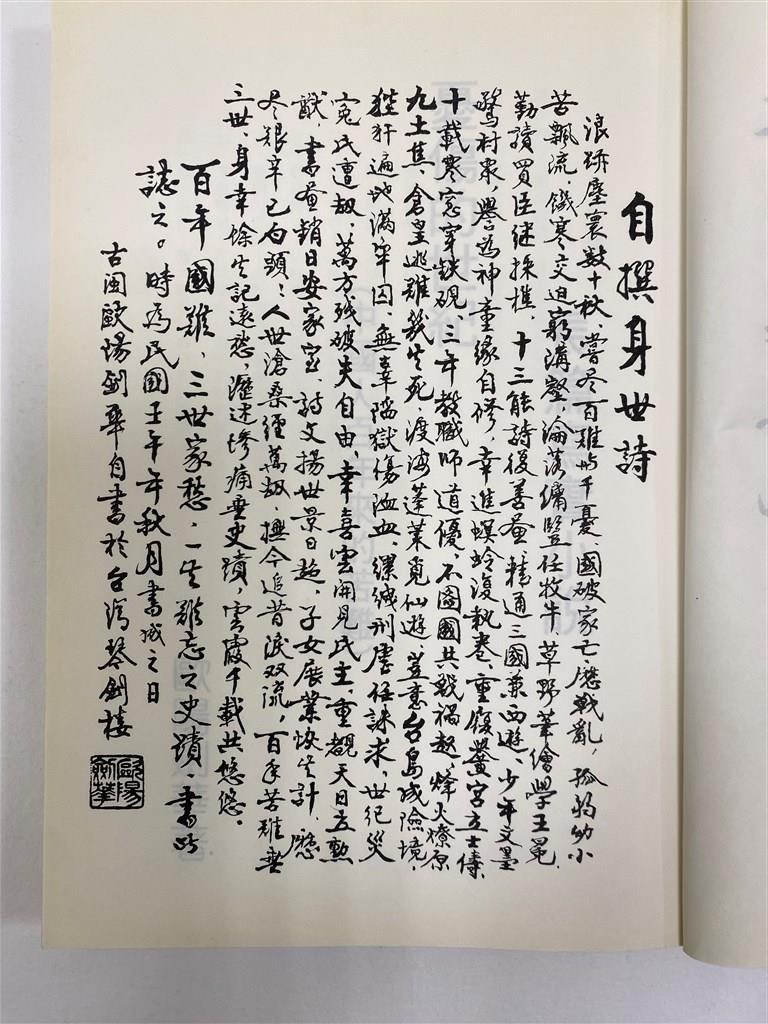 自撰身世詩
浪跡塵寰數十秋、嘗尽百難与千憂、國破家亡歷戰亂，孤弱幼小
苦飄流、饑寒交迫窮溝壑，淪落傭豎任牧牛、草野葦繪學王冕、
勤讀買臣继採樵、十三能詩後善畫、精通三國兼西遊、少年文墨
驚村眾、譽為神童緣自修、幸進螟蛉復執卷、重復黌宮立士儔、
十載寒窓穿鉄硯、三年教職師道優、不圖國共親禍起、烽火燎原
九土焦、倉皇逃難幾生死、渡海蓬萊覓仙遊、豈意台島成險境、
狴犴遍地滿牢囚、無辜陷獄傷血、縲絏刑虐任誅求、世紀災
冤氏遭劫、萬方殘破失自由、幸喜雲開見民主、重覩天日立勲
猷、書畫銷日安家室、詩文揚世景日超、子女展業恢生計、歷
尽艰辛已白頭；人世滄桑經萬劫、撫今追昔淚双流，百年苦難垂
三世、身幸餘生記遠愁，瀝述慘痛垂史蹟，雲霞千載共悠悠。
百年國難、三世家愁、一生難忘之史蹟、書此
誌之。時為民國壬午年秋月書成之日
古閩歐陽劍華自書於台灣琴劍樓
歐陽劍華